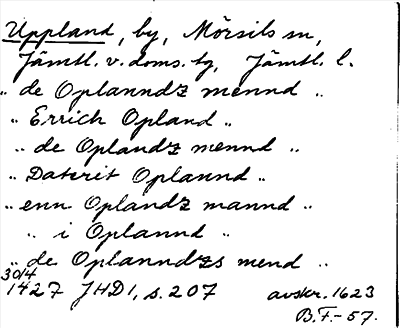 Uppland, by, Mörsils sn,
Jämtl. v. doms. tg, Jämtl. l.
„ de Oplanndz mennd „
„ Errich Opland „
„ de Oplandz mennd „
„ Daterit Oplannd „
„ enn Oplandz mannd „
„ i Oplannd „
„ de Oplanndzs mend „
30/4
1427 JHD1, s. 207 avskr. 1623
B.F.-57.